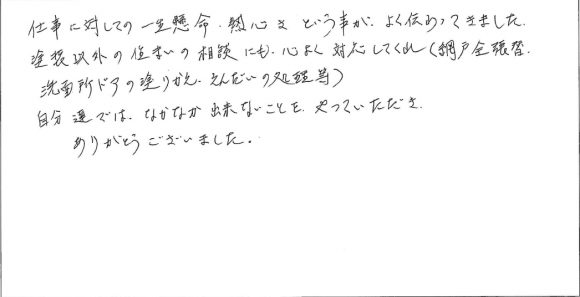 仕事に対しての一生懸命、熱心さという事が、よく伝わってきました。
塗装以外の住まいの相談にも、心よく対応してくれ(網戸全張替、
洗面所ドアの塗りかえ、そんだいの処理等)
自分達では、なかなか出来ないことを、やっていただき、
ありがとうございました。